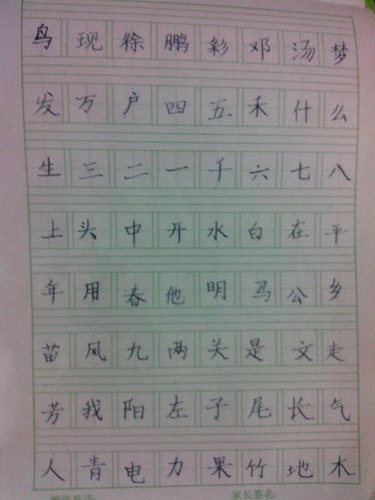 鸟现徐鹏彩邓汤梦
发万户四五禾什么
生三二一千六七八
上头中开水白在平
年用春他明马公乡
苗风九两关是文走
芳我阳左子尾长气
人青电力果竹地木
家长签名